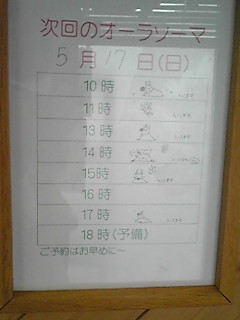 次回のオーラソーマ
5月17日(日)
10時
11時
13時
14時
15時
16時
17時
18時(予備)
ご予約はお早めに～